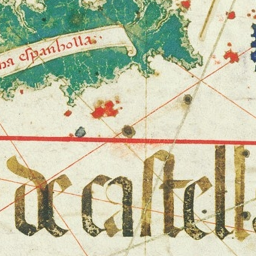 na espanholla
de castell